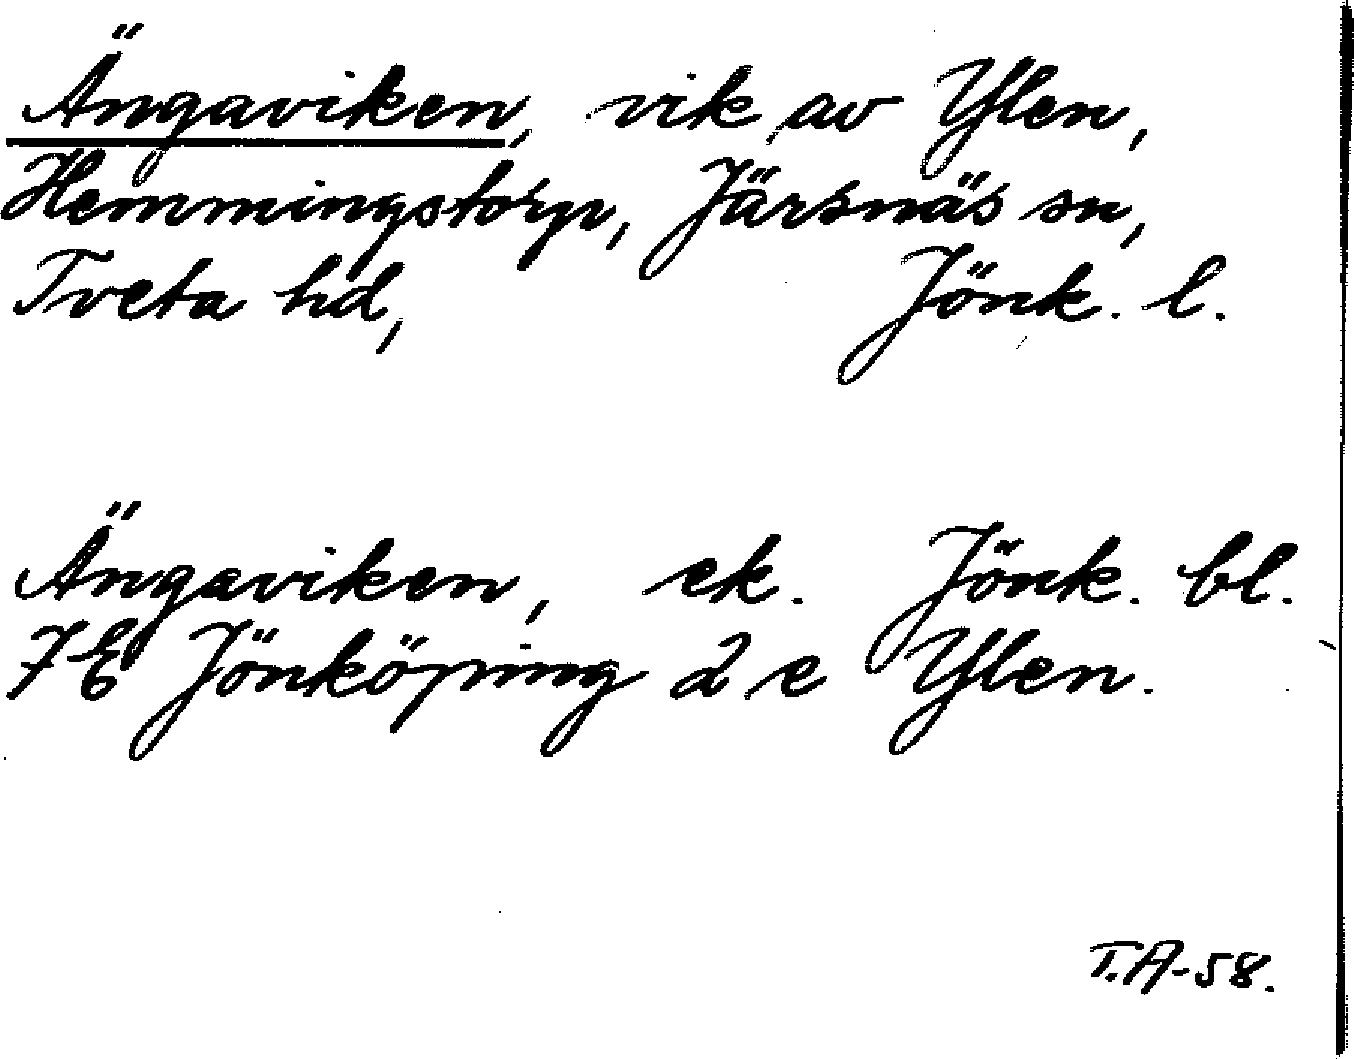 Ängaviken, vik av Ylen,
Hemmingstorp, Järsnäs sn,
Tveta hd, Jönk. l.
Ängaviken, ek. Jönk. bl.
7E Jönköping 2 e Ylen.
T.A-58.